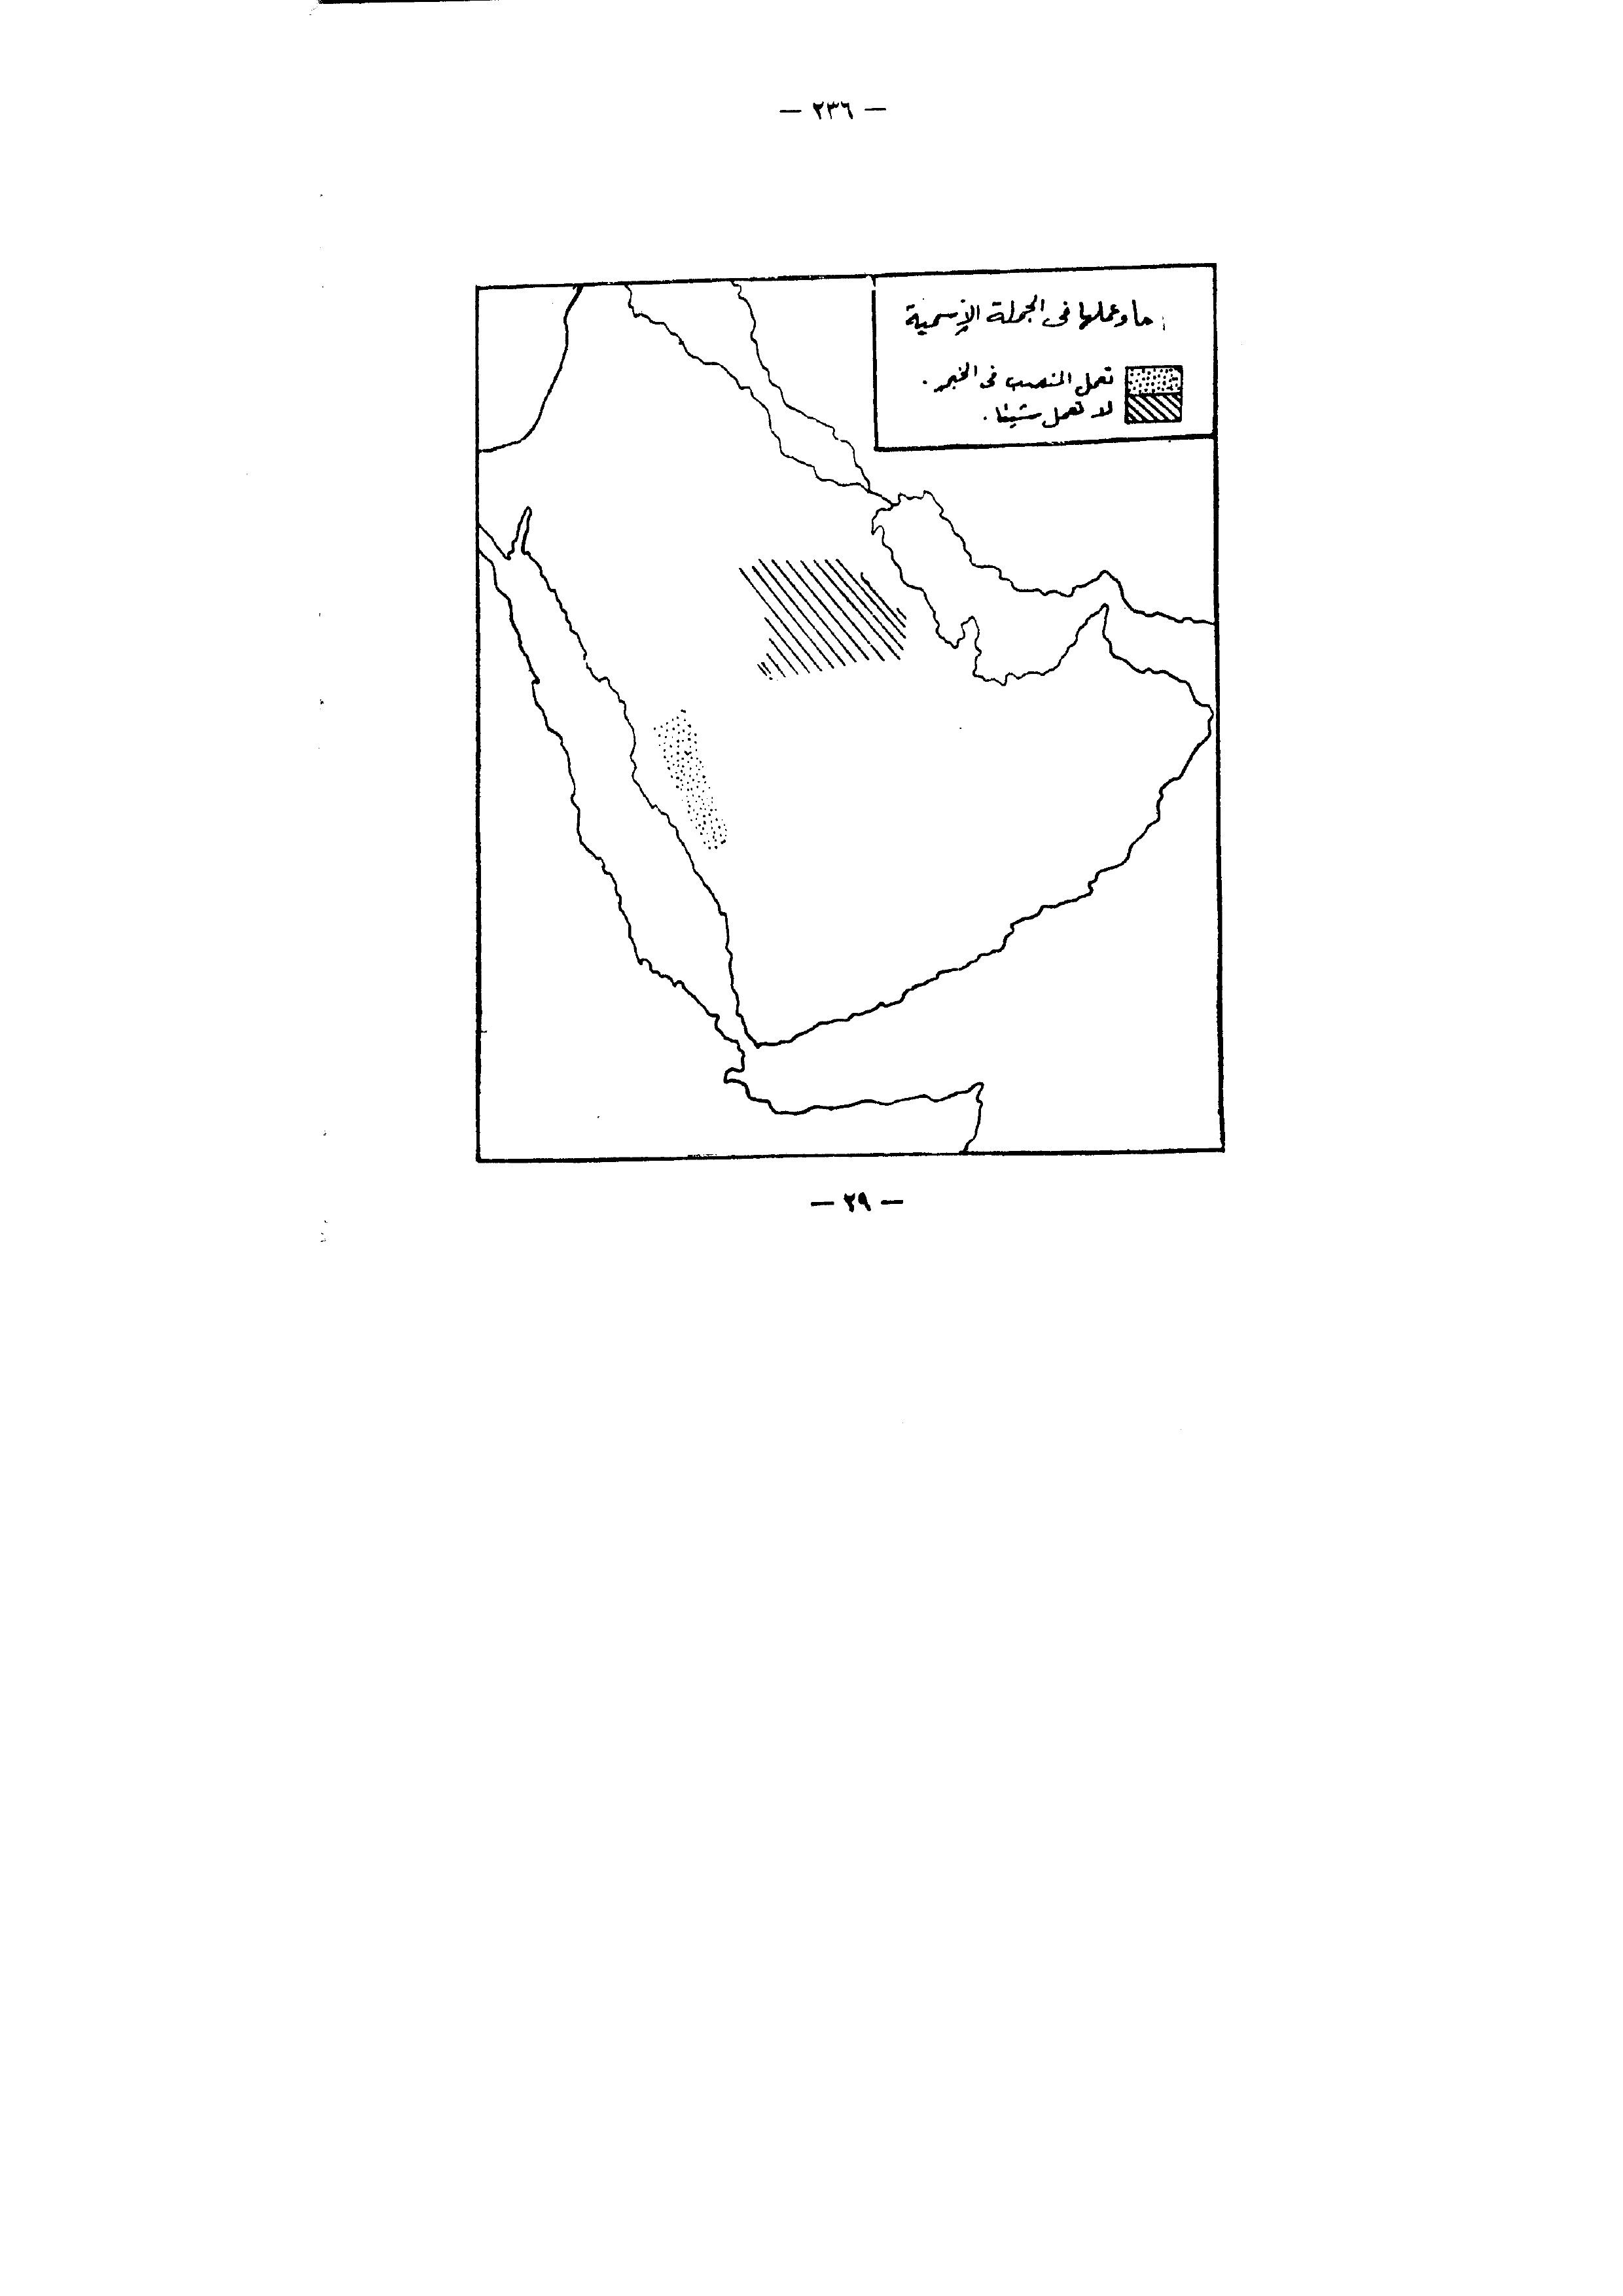 — ٢٣٦ —
ما وعملها في الجملة الإسمية :
تعمل النصب في الخبر .
لا تعمل شيئا .
— ٢٩ —